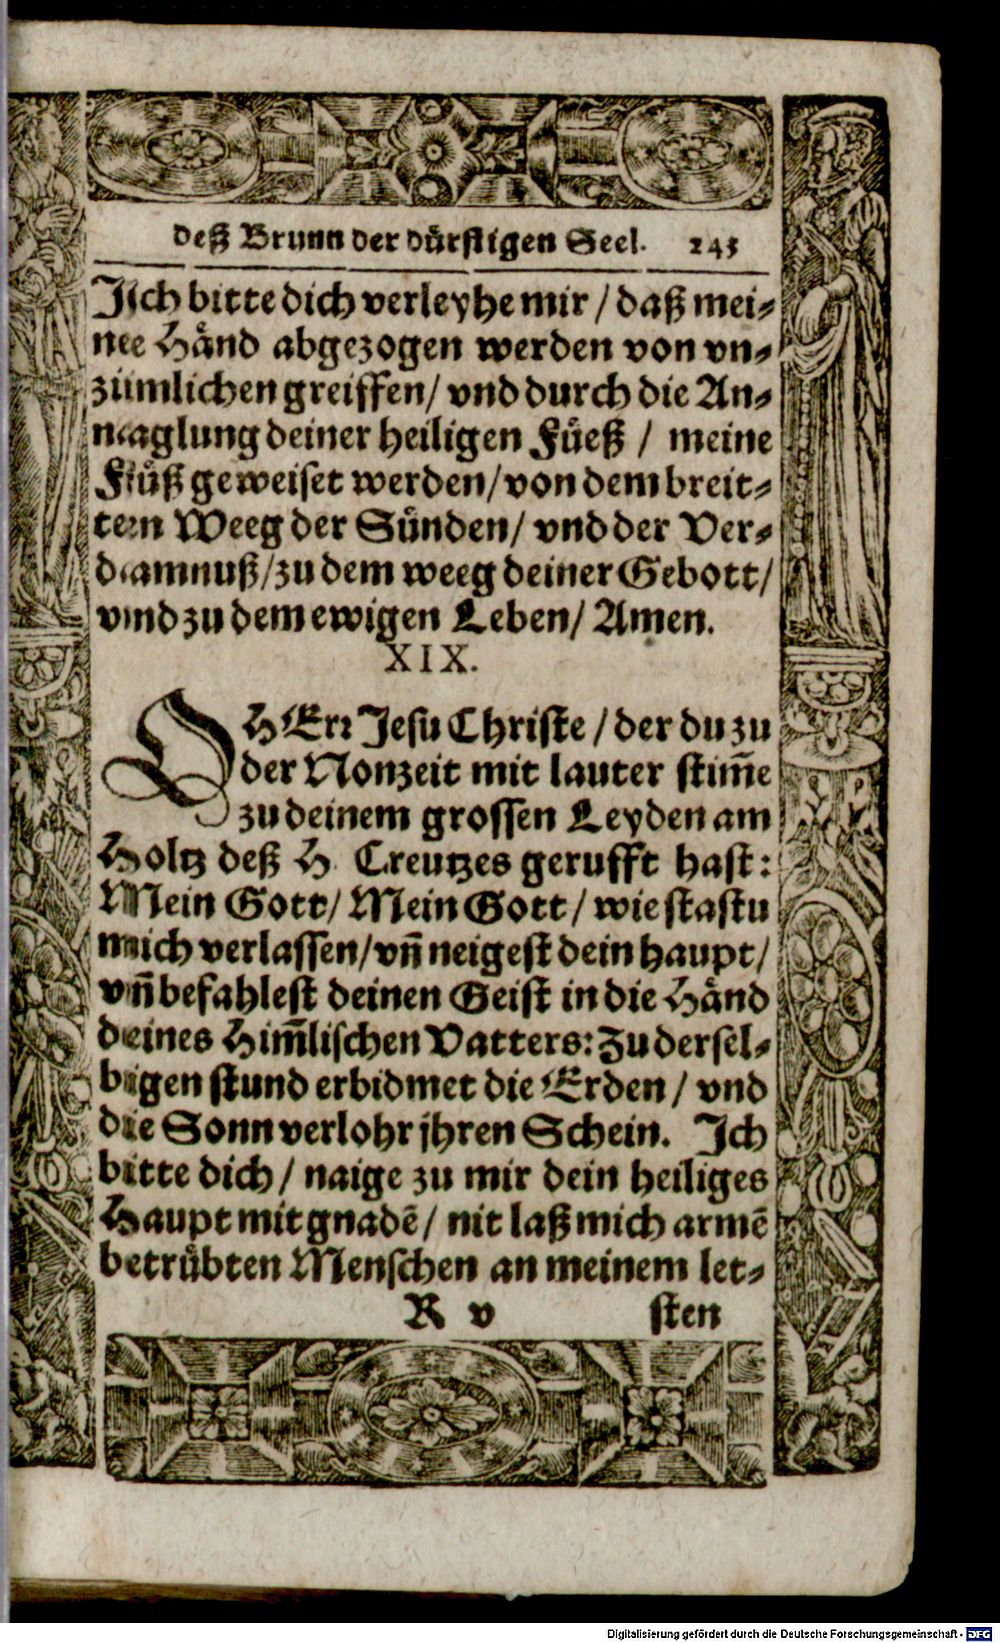 deß Brunn der dürfftigen Seel. 245
Ich bitte dich verleyhe mir / daß mei-
ne Händ abgezogen werden von vn-
zimlichen greiffen / vnd durch die An-
naglung deiner heiligen Füeß / meine
Füß geweiset werden / von dem breit-
ten Weeg der Sünden / vnd der Ver-
damnuß / zu dem weeg deiner Gebott /
vnd zu dem ewigen Leben / Amen.
XIX.
O HErr Jesu Christe / der du zu
der Nonzeit mit lauter stim̃e
zu deinem grossen Leyden am
Holtz deß H. Creutzes gerufft hast:
Mein Gott / Mein Gott / wie hastu
mich verlassen / vñ neigest dein haupt /
vñ befahlest deinen Geist in die Händ
deines Him̃lischen Vatters: Zu dersel-
bigen stund erbidmet die Erden / vnd
die Sonn verlohr jhren Schein. Ich
bitte dich / naige zu mir dein heiliges
Haupt mit gnadē / nit laß mich armē
betrübten Menschen an meinem let-
R v sten
Digitalisierung gefördert durch die Deutsche Forschungsgemeinschaft - DFG